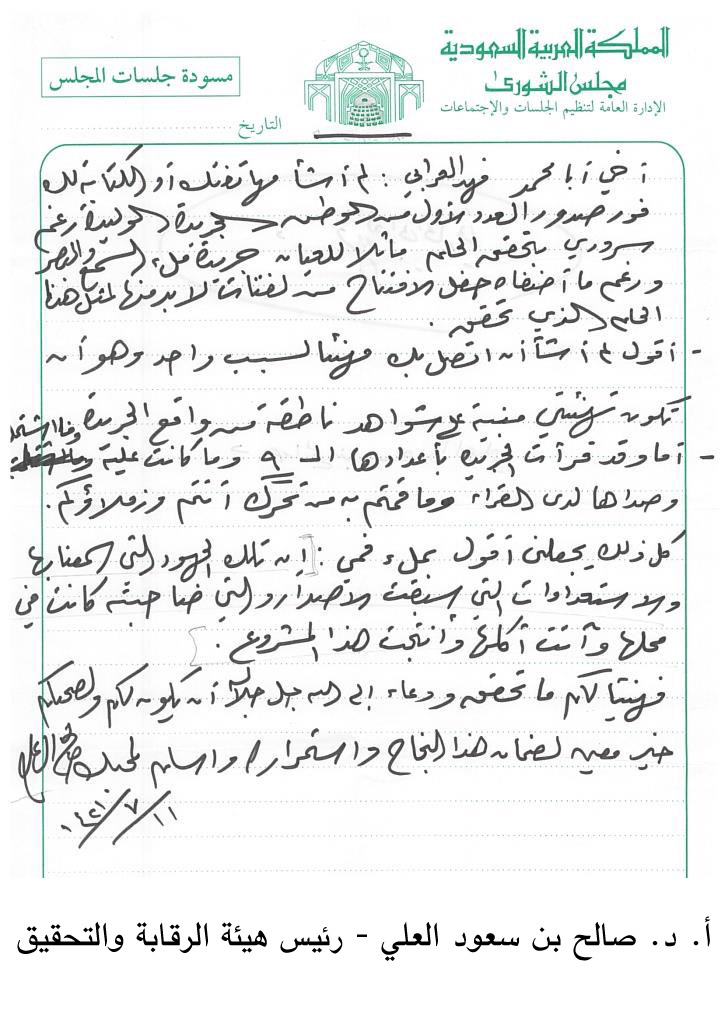 المملكة العربية السعودية
مجلس الشورى
الإدارة العامة لتنظيم الجلسات والإجتماعات
مسودة جلسات المجلس
التاريخ
أخي أبا محمد فهد العرابي : لم أشأ مهاتفتك أو الكتابة لك
فور صدور العدد الأول من الوطن الجريدة الوليدة رغم
سروري بتحقق الحلم ماثلا للعيان جريدة ملء السمع والبصر
ورغم ما أضفاه حفل الافتتاح من لفتات لا بد منها لمثل هذا
الحلم الذي تحقق .
- أقول لم أشأ أن اتصل بك مهنئا لسبب واحد وهو أن
تكون تهنئتي مبنية على شواهد ناطقة من واقع الجريدة
- أما وقد قرأت الجريدة بأعدادها الـ ٩ وما كانت عليه
وصداها لدى القراء وما قمتم به من تحرك أنتم وزملاؤكم .
كل ذلك يجعلني أقول بملء فمي : إن تلك الجهود التي سمعنا بها
والاستعدادات التي سبقت الاصدار والتي صاحبته كانت في
محلها وآتت أكلها وأنتجت هذا المشروع .
فهنيئا لكم ما تحقق ودعاء إلى الله جل جلاله أن يكون لكم ولصحبكم
خير معين لضمان هذا النجاح واستمراره واسلم لمحبك صالح العلي
١٤٢١/٧/١١
أ. د. صالح بن سعود العلي - رئيس هيئة الرقابة والتحقيق